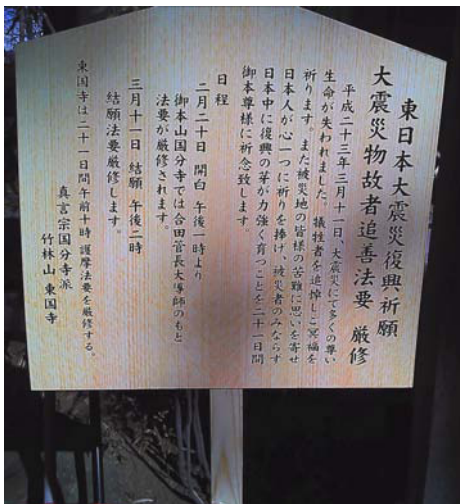 東日本大震災復興祈願
大震災物故者追善法要 厳修
平成二十三年三月十一日、大震災にて多くの尊い
生命が失われました。犠牲者を追悼しご冥福を
祈ります。また被災地の皆様の苦難に思いを寄せ
日本人が心一つに祈りを捧げ、被災者のみならず
日本中に復興の芽が力強く育つことを二十一日間
御本尊様に祈念致します。
日程
二月二十日 開白 午後一時より
御本山国分寺では合田管長大導師のもと
法要が厳修されます。
三月十一日 結願 午後二時
結願法要厳修します。
東国寺は二十一日間午前十時 護摩法要を厳修する。
真言宗国分寺派
竹林山 東国寺